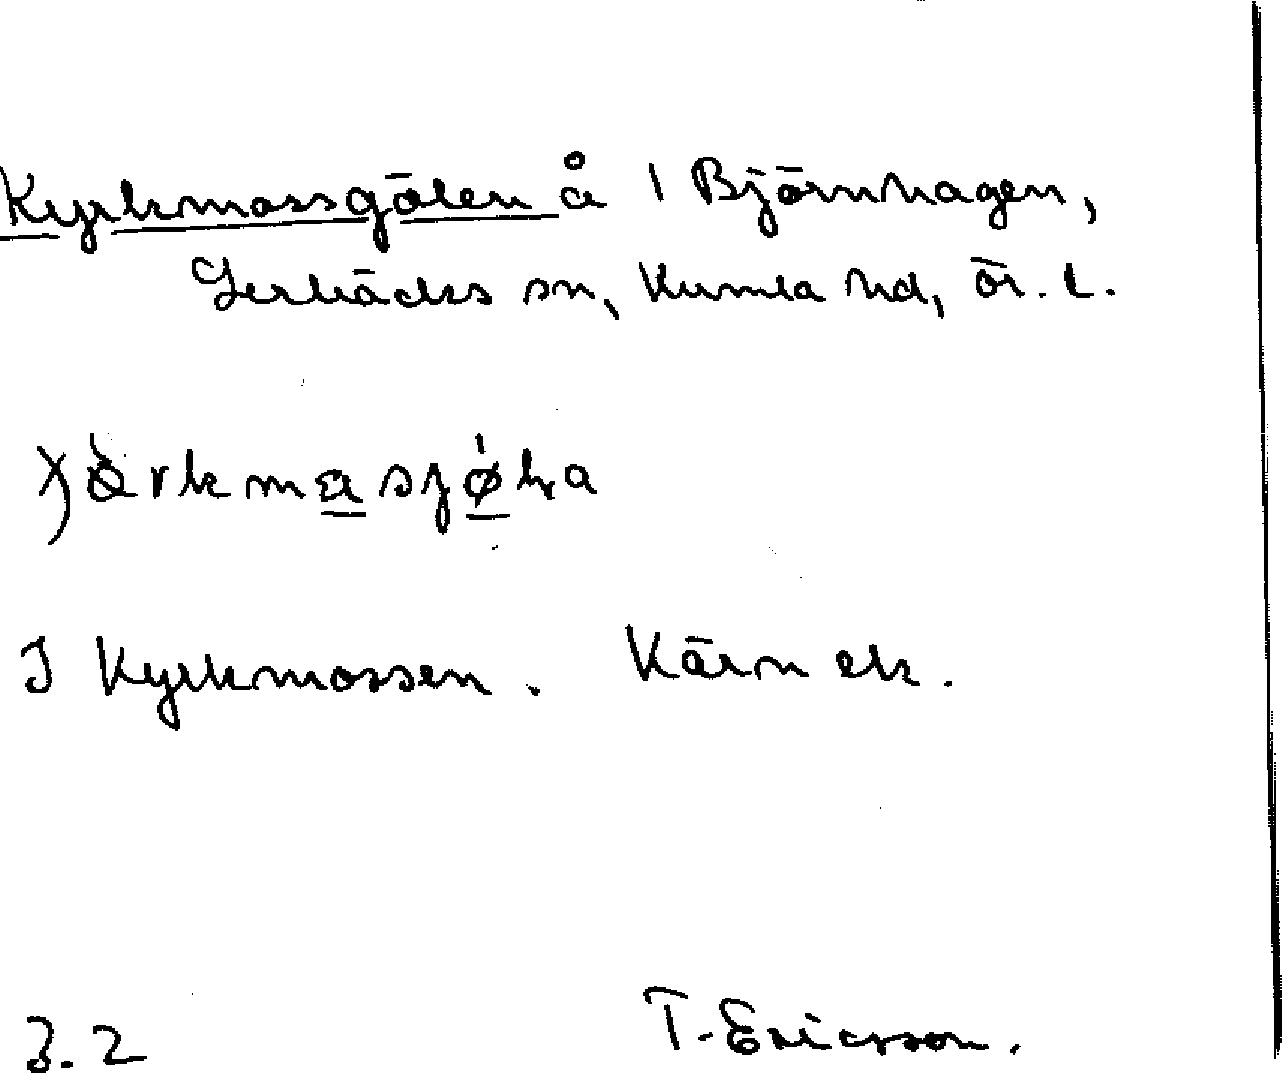 Kyrkmossgölen å 1 Björnhagen,
Lerbäcks sn, Kumla hd, Ör. l.
I Kyrkmossen. Kärn ek.
3.2 T. Ericsson.